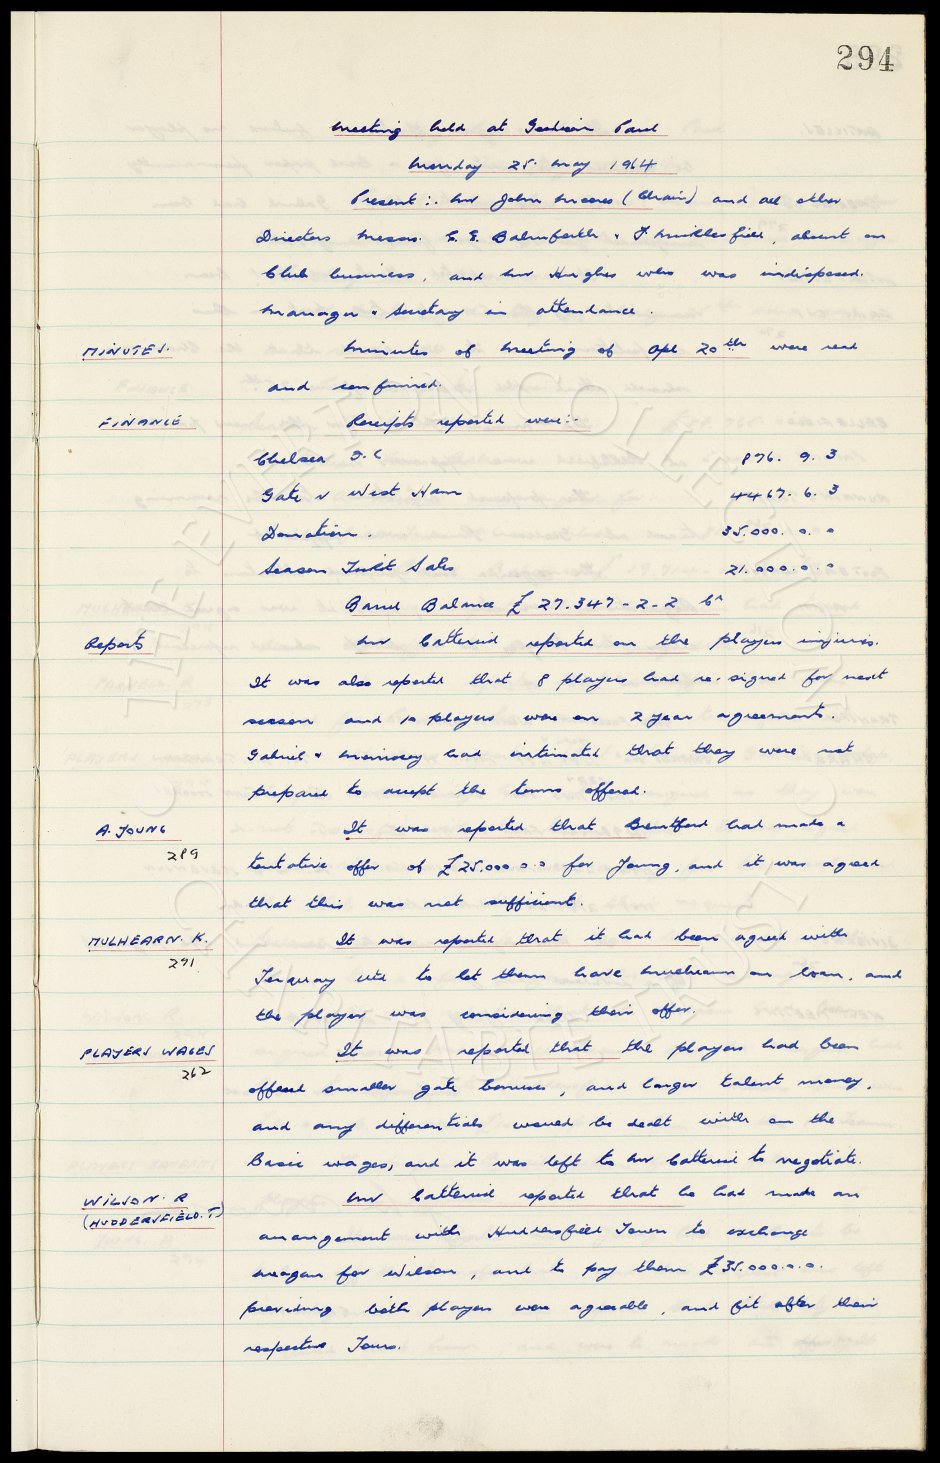 294
Meeting held at Goodison Park
Monday 25. May 1964
Present :. Mr John Moores (Chair) and all other
Directors Messrs. C. E. Balmforth & F. Micklesfield, absent on
Club business, and Mr Hughes who was indisposed.
Manager & Secretary in attendance.
MINUTES. Minutes of Meeting of Apl 20th were read
and confirmed.
FINANCE Receipts reported were:-
Chelsea F.C 876. 9. 3
Gate v West Ham 4467. 6. 3
Donation. 35.000. 0. 0
Season Ticket Sales 21.000.0.0
Bank Balance £27.347-2-2 Cr
Reports Mr Catterick reported on the players injuries.
It was also reported that 8 players had re-signed for next
season and 10 players were on 2 year agreements.
Gabriel & Morrissey had intimated that they were not
prepared to accept the terms offered.
A. YOUNG It was reported that Brentford had made a
289
tentative offer of £25,000 0.0 for Young, and it was agreed
that this was not sufficient.
MULHEARN. K. It was reported that it had been agreed with
291
Torquay Utd to let them have Mulhearn on loan, and
the player was considering their offer.
PLAYERS WAGES It was reported that the players had been
262
offered smaller gate bonuses, and larger talent money,
and any differentials would be dealt with on the
Basic wages, and it was left to Mr Catterick to negotiate.
WILSON. R Mr Catterick reported that he had made an
(HUDDERSFIELD. T)
arrangement with Huddersfield Town to exchange
Meagan for Wilson, and to pay them £35.000.0.0.
providing both players were agreeable, and fit after their
respective Tours.